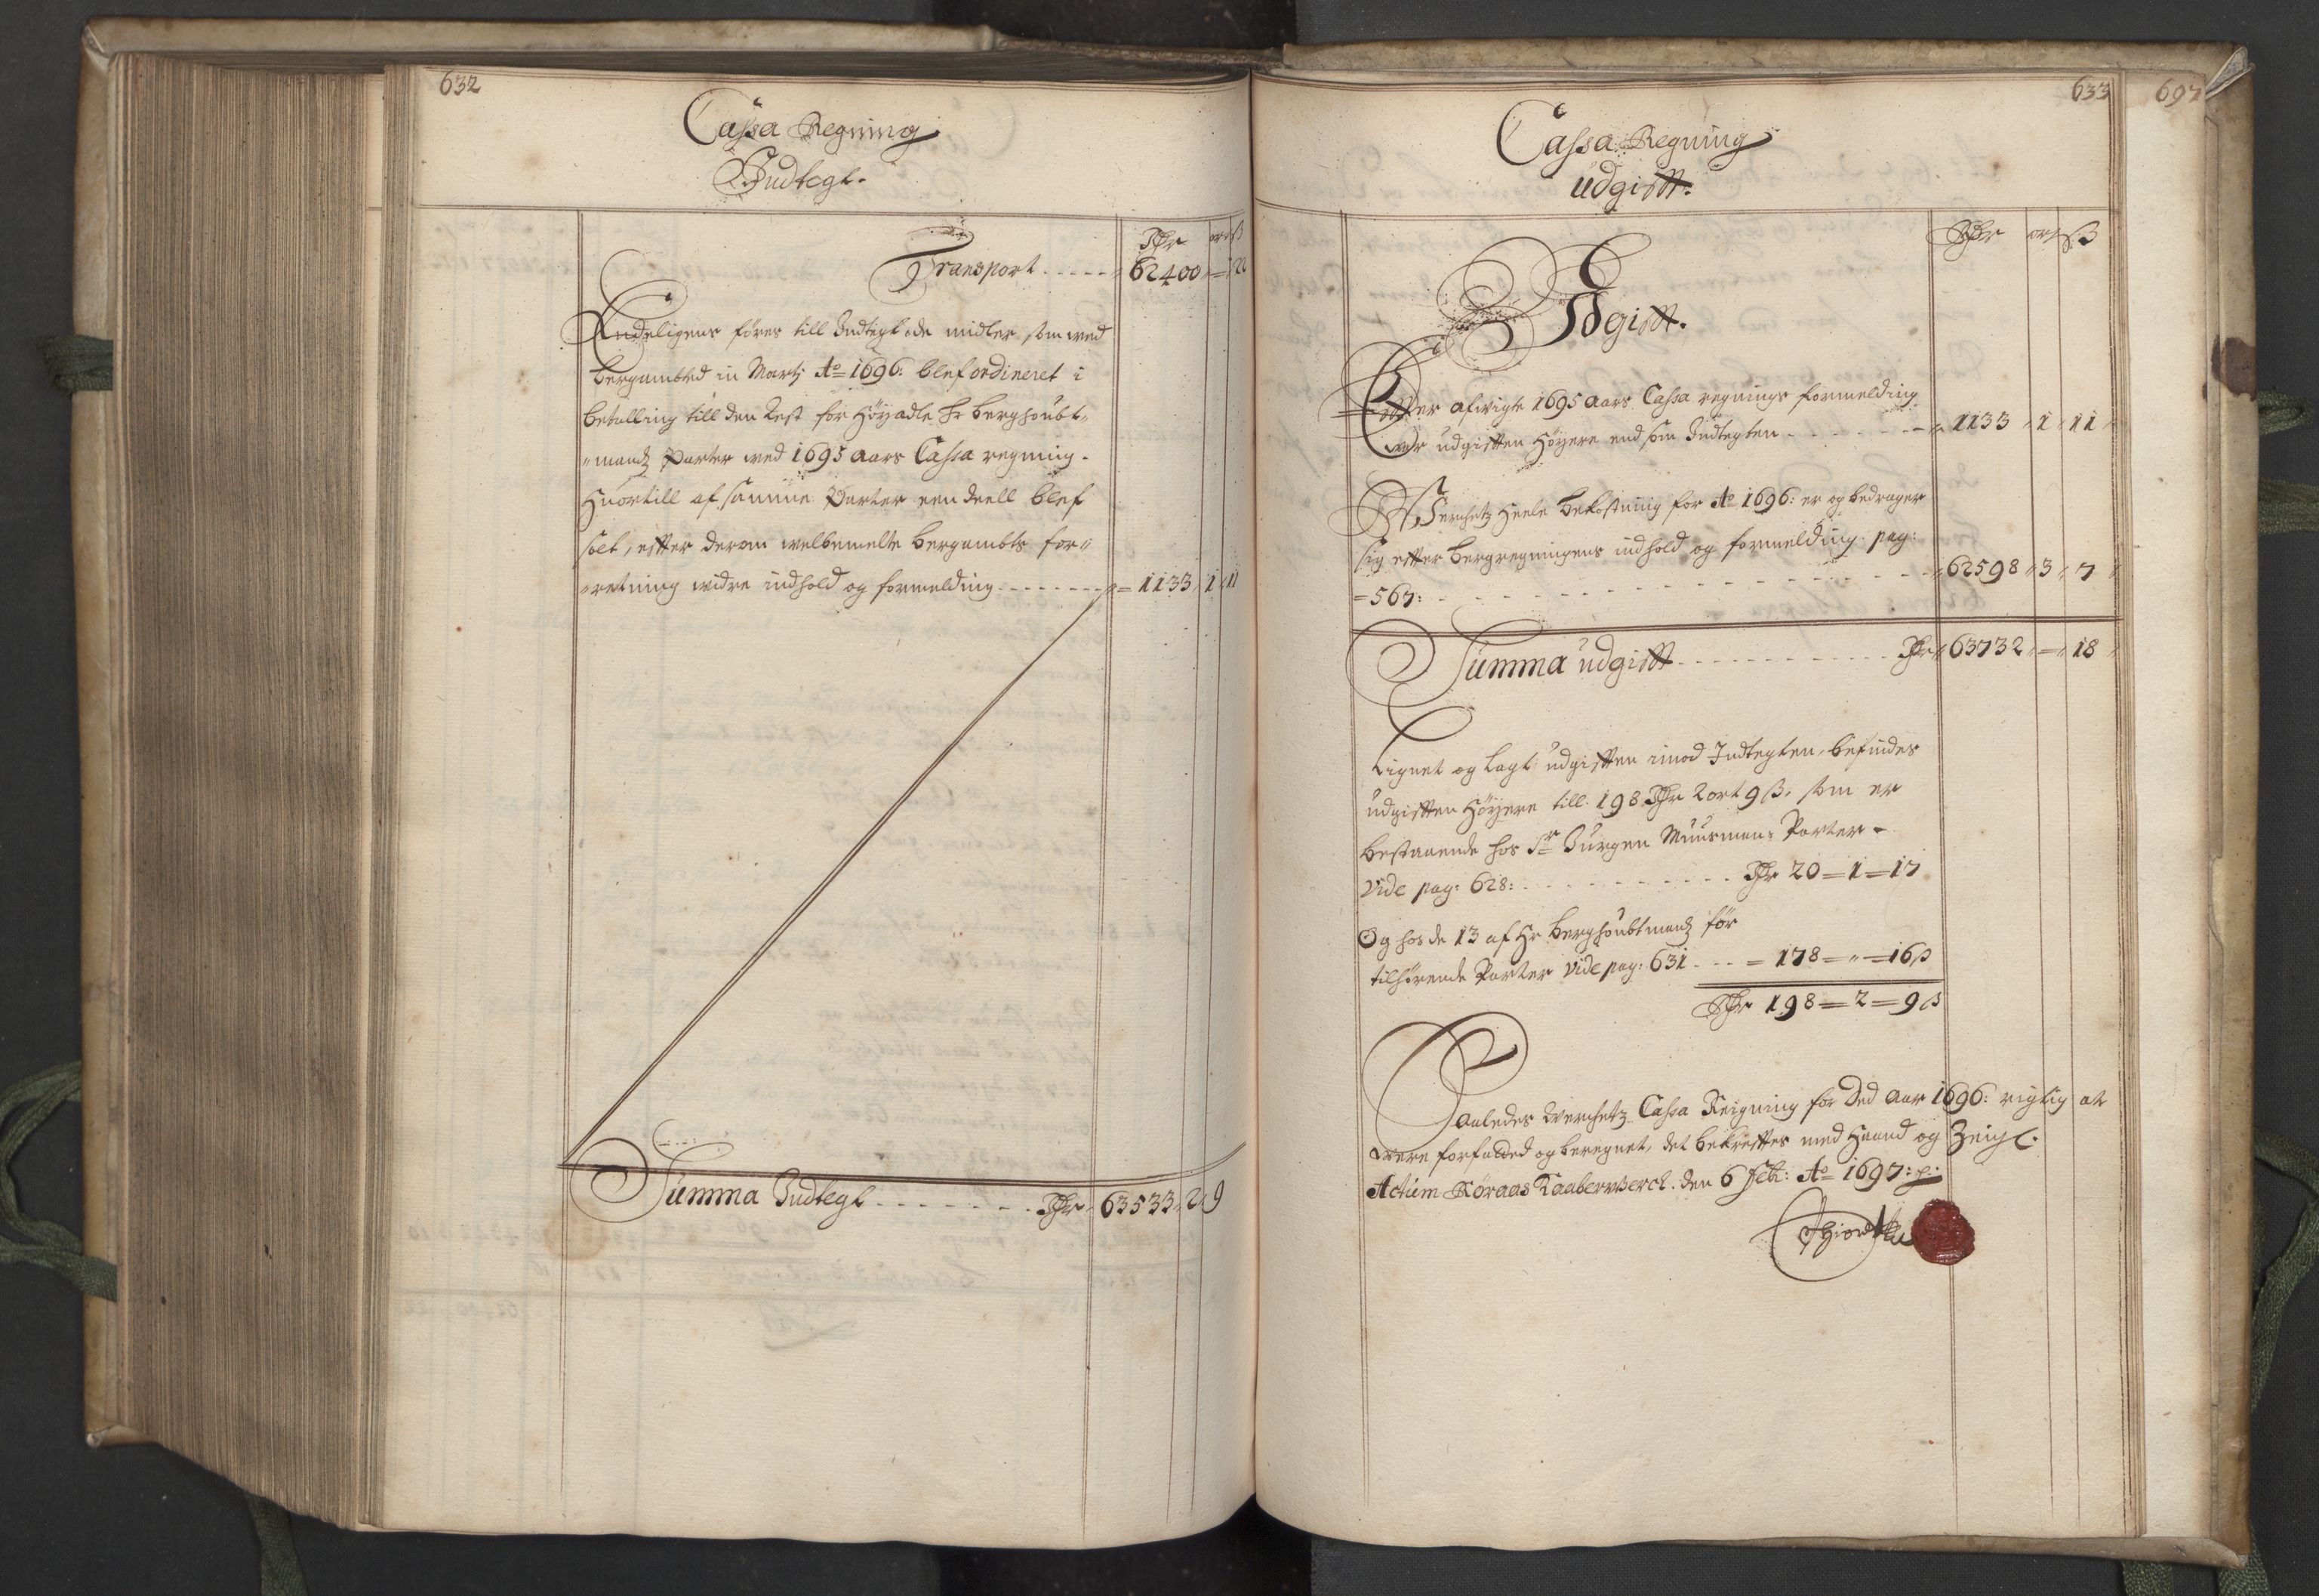 632
Cassa Regning
Indtegt.
Rdr ort ß
Transport - - - - - 62400 = 22
Endeligens föres till Indtegt de midler som wed
bergambted in Martj Ao 1696: blef ordineret i
betalling till den Rest for Höyadle Hr berghoubt-
mandz Parter wed 1695 aars Cassa regning.
Huortill af samme Parter een deell blef
solt, effter derom welbemelte bergambts for-
retning widre indhold og formelding - - - - - - - = 1133 1 11
Summa Indtegt - - - - - - - Rdr 63533 2 9
633
697
Cassa Regning
udgifft.
Rdr ort ß
Udgifft.
Effter afwigte 1695 aars Cassa regnings formelding
war udgifften Höyere end som Indtegten - - - - - - - 1133 1 11
Werchetz Heele bekostning for Ao 1696: er og bedrager
sig effter bergregningens indhold og formelding pag:
567: - - - - - - - - - - - - - - 62598 3 7
Summa udgifft - - - - - - - - - - - - Rdr 63732 = 18
Lignet og lagt udgifften imod Indtegten, befindes
udgifften Höyere till 198 Rdr 2 ort 9 ß, som er
bestaaende hos Sr Jurgen Muusmans Parter -
vide pag: 628: - - - - - - - - - - - Rdr 20 = 1 = 17
Og hos de 13 af Hr berghoubtmandz för
tilhörende Parter vide pag: 631 - - - = 178 = " = 16 ß
Rdr 198 = 2 = 9 ß
Saaledes Werchetz Cassa Reigning for Ded aar 1696: rigtig at
were forfatted og beregnet, det bekreffter med Haand og Zeigl.
Actum Röraas Kaaberwerck. den 6 Feb: Ao 1697: p: